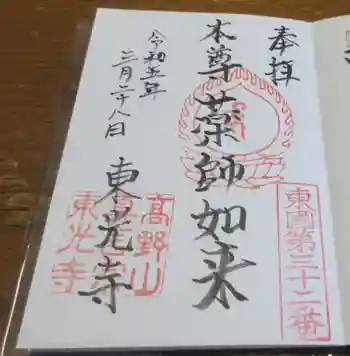 奉拝
東国第三十二番
本尊薬師如来
東光寺
高野山
東光寺
令和五年
二月二十八日